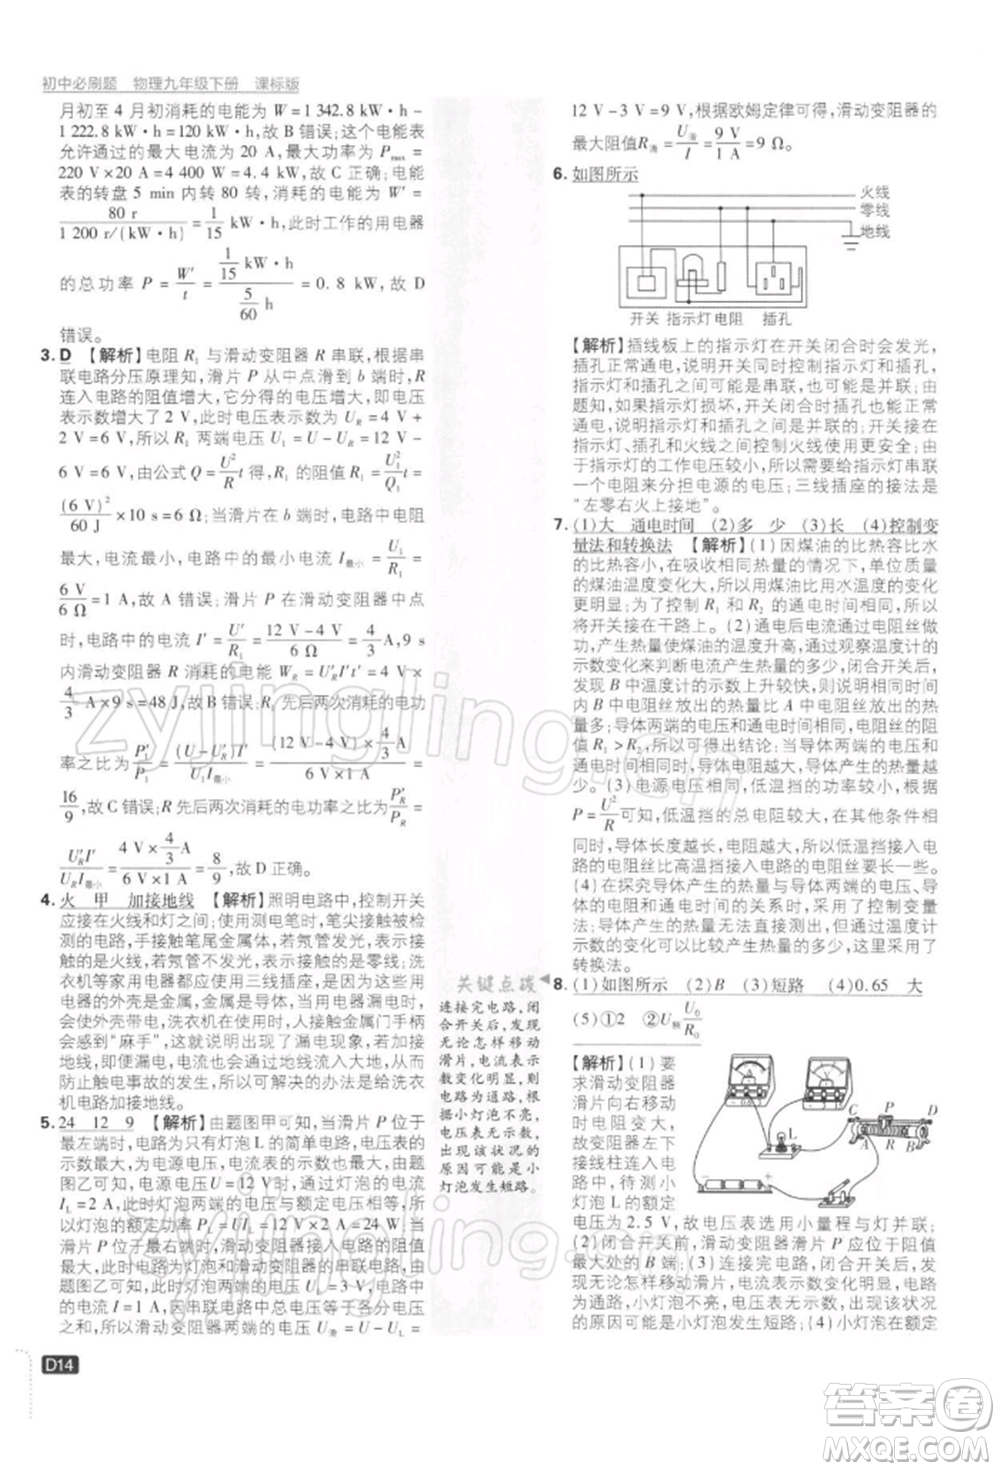 初中必刷题 物理九年级下册 课标版
月初至 4 月初消耗的电能为 W = 1 342.8 kW·h -
1 222.8 kW·h=120 kW·h,故 B 错误;这个电能表
允许通过的最大电流为 20 A,最大功率为 Pmax =
220 V×20 A=4 400 W=4.4 kW,故 C 正确;电能
表的转盘 5 min 内转 80 转,消耗的电能为 W′ =
80 r/1 200 r/(kW·h) = 1/15 kW·h,此时工作的用电器
的总功率 P = W′/t = (1/15 kW·h)/(5/60 h) = 0.8 kW,故 D
错误。
3. D 【解析】电阻 R1 与滑动变阻器 R 串联,根据串
联电路分压原理知,滑片 P 从中点滑到 b 端时,R
连入电路的阻值增大,它分得的电压增大,即电压
表示数增大了 2 V,此时电压表示数为 UR = 4 V +
2 V=6 V,所以 R1 两端电压 U1 = U − UR = 12 V −
6 V = 6 V,由公式 Q = U²/R t 得,R1 的阻值 R1 = U1²/Q t =
(6 V)²/60 J ×10 s=6 Ω;当滑片在 b 端时,电路中电阻
最大,电流最小,电路中的最小电流 I最小 = U1/R1 =
6 V/6 Ω = 1 A,故 A 错误;滑片 P 在滑动变阻器中点
时,电路中的电流 I′ = U′/R1 = (12 V−4 V)/6 Ω = 4/3 A,9 s
内滑动变阻器 R 消耗的电能 WR = U′R I′t′ = 4 V×
4/3 A×9 s=48 J,故 B 错误;R1 先后两次消耗的电功
率之比为 P′1/P1 = (U−U′R)I′/U1I最小 = ((12 V−4 V)×4/3 A)/(6 V×1 A) =
16/9,故 C 错误;R 先后两次消耗的电功率之比 P′R/PR =
U′RI′/URI最小 = (4 V×4/3 A)/(6 V×1 A) = 8/9,故 D 正确。
4. 火 甲 加接地线 【解析】照明电路中,控制开关
应接在火线和灯之间;使用测电笔时,笔尖接触被检
测的电路,手接触笔尾金属体,若氖管发光,则表示
接触的是火线,若氖管不发光,则表示的是零线;洗
衣机等家用电器都应使用三线插座,将用电器的外
壳与大地相连,当用电器的金属外壳漏电时,电流
会使外壳带电,洗衣机放在绝缘的地板砖上,由于
人接触金属外壳漏电的洗衣机时,接触金属门手柄
会感到"麻手",这说明洗衣机外壳没有接地线;若
接地线,即便漏电,电流也会通过地线流入大地,从
而防止触电事故的发生,所以解决的办法是给洗衣
机电路加接地线。
5. 24 12 9 【解析】由题图甲可知,当滑片 P 位于
最左端时,电路为只有灯泡 L 的简单电路,电压表
示数为电源电压,电流表的示数为最大,由题图乙
可知,电源电压为 U=12 V 时,灯泡的额定电流为
IL=2 A,灯泡的额定功率为 P=UIL=12 V×2 A=24 W;
当滑片 P 位于最右端时,滑动变阻器接入电路的阻值
最大,此时灯泡与滑动变阻器串联,电流最小,由
题图乙可知,此时灯泡两端的电压 UL = 3 V,电流
I=1 A,因串联电路中总电压等于各分电压之和,
所以,此时滑动变阻器两端的电压 U滑 = U − UL =
12 V−3 V=9 V,根据欧姆定律可得,滑动变阻器的
最大阻值R滑 = U滑/I = 9 V/1 A = 9 Ω。
6. 如图所示
火线
零线
地线
开关 指示灯 电阻 插孔
【解析】插线板上的指示灯在开关闭合时会发光,
插孔正常通电,说明开关同时控制指示灯和插孔,
指示灯与插孔之间可能是串联,也可能是并联;由
题知,如果指示灯损坏,开关闭合时插孔也能正常
通电,说明指示灯与插孔之间是并联的;开关接在
指示灯、插孔和火线之间控制火线使用更安全;由
于指示灯的工作电压较小,所以指示灯先串联
一个电阻来分担电源的电压;三线插座的接法是
"左零右火上接地"。
7. (1)大 通电时间 (2)多 少 (3)长 (4)控制变
量法和转换法 【解析】(1)因煤油的比热容比水
的比热容小,在吸收相同热量的情况下,单位质量
的煤油温度变化大,所以用煤油比用水温度的变化
更明显;为了控制 R1 和 R2 的通电时间相同,所以
将开关接在干路上。(2)通电后电流通过电阻丝做
功,使煤油的温度升高,通过观察温度计
示数变化来判断电流产生热量的多少,闭合开关后,
发现 B 中温度计的示数上升较快,说明在相同时间
内 B 中电阻丝放出的热量比 A 中电阻丝放出的热
量多;导体两端的电压和通电时间相同,电阻丝的阻
值 R1 > R2,可得出结论;当导体两端的电压与通
电时间相同时,导体的电阻越大,电流产生的热量
越少。(3)电源电压相同,低温挡的功率小,由
P = U²/R 可知,低温挡接入电路的总电阻较大,而
导体长度越长,电阻越大,所以低温挡接入电
路的电阻丝比高温挡接入电路的电阻丝更长。
(4)在探究导体产生的热量与导体两端的电压、导
体的电阻和通电时间的关系时,采用了控制变量
法;导体产生热量的多少无法直接测量,温度计
示数的变化可以比较产生热量的多少,采用了
转换法。
8. (1)如图所示 (2)B (3)短路 (4)0.65 大
(5)①2 ②U额 U0/R0
关键点拨
连接完电路,闭
合开关后,发现
无论怎样移动
滑片,电流表示
数变化明显,则
电路为通路,根
据小灯泡不亮,
电压表示数为
0,则出现
该状况的
原因可能是
小灯泡发生短路。
【解析】(1)要
求滑动变阻器
的滑片向右移
动时电阻变大,
故变阻器左下
接线柱连入电
路中,待测小
灯泡 L 的额定
电压为 2.5 V,故电压表选用小量程与灯并联;
(2)闭合开关前,滑动变阻器滑片 P 应位于阻值
最大处的 B 端;(3)连接完电路,闭合开关后,发现
无论怎样移动滑片,电流表示数变化明显,则电路
为通路,小灯泡不亮,电压表示数为 0,则出现该状况
的原因可能是小灯泡发生短路;(4)小灯泡在额定
C P D A R B L
D14
zyjingling.cn
答案圈
MXQE.COM